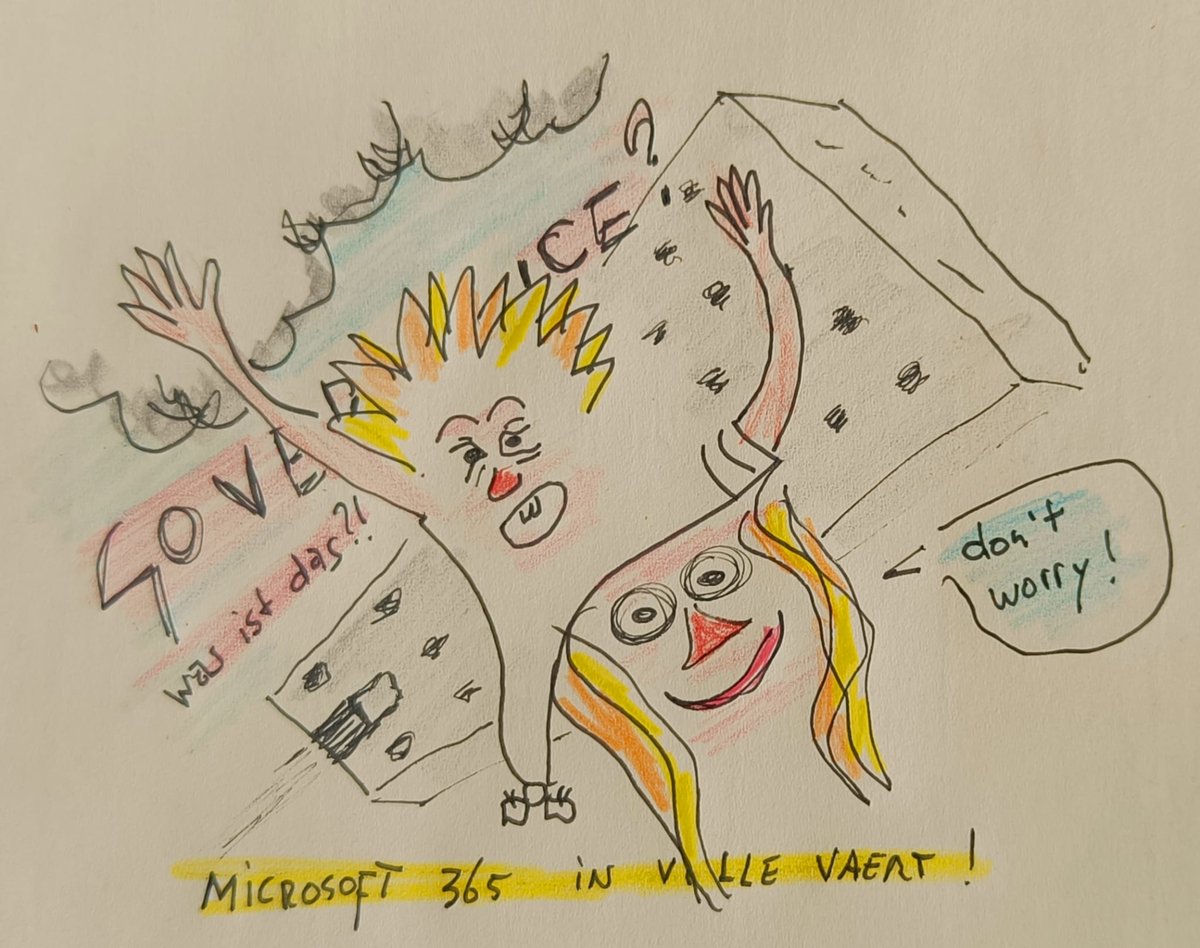 GOVER ICE?
was ist das?!
don't
worry!
MICROSOFT 365 IN VOLLE VAERT!